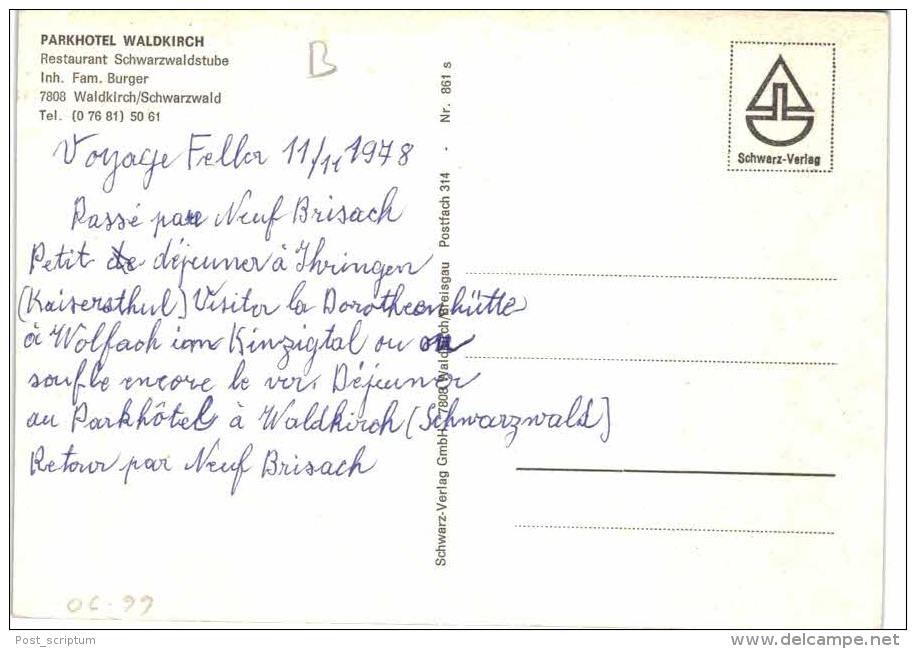 PARKHOTEL WALDKIRCH
Restaurant Schwarzwaldstube
Inh. Fam. Burger
7808 Waldkirch/Schwarzwald
Tel. (0 76 81) 50 61
B
Voyage Feller 11/11 1978
Passé par Neuf Brisach
Petit de déjeuner à Ihringen
(Kaisersthul) Visiter la Dorotheenhütte
à Wolfach im Kinzigtal ou on
soufle encore le ver. Déjeuner
au Parkhôtel à Waldkirch (Schwarzwald)
Retour par Neuf Brisach
Schwarz-Verlag GmbH · 7808 Waldkirch/Breisgau Postfach 314 · Nr. 861 s
Schwarz-Verlag
OC-99
Post_scriptum
www.delcampe.net